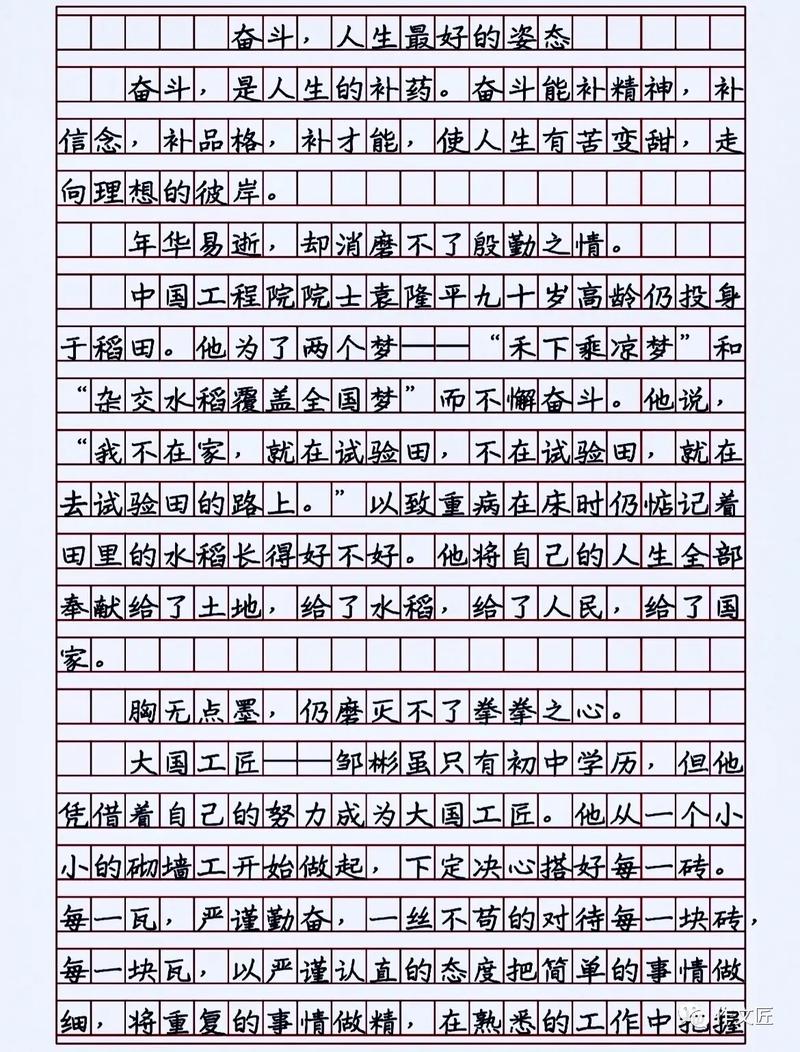 奋斗，人生最好的姿态
奋斗，是人生的补药。奋斗能补精神，补
信念，补品格，补才能，使人生有苦变甜，走
向理想的彼岸。
年华易逝，却消磨不了殷勤之情。
中国工程院院士袁隆平九十岁高龄仍投身
于稻田。他为了两个梦——“禾下乘凉梦”和
“杂交水稻覆盖全国梦”而不懈奋斗。他说，
“我不在家，就在试验田，不在试验田，就在
去试验田的路上。”以致重病在床时仍惦记着
田里的水稻长得好不好。他将自己的人生全部
奉献给了土地，给了水稻，给了人民，给了国
家。
胸无点墨，仍磨灭不了拳拳之心。
大国工匠——邹彬虽只有初中学历，但他
凭借着自己的努力成为大国工匠。他从一个小
小的砌墙工开始做起，下定决心搭好每一砖。
每一瓦，严谨勤奋，一丝不苟的对待每一块砖，
每一块瓦，以严谨认直的态度把简单的事情做
细，将重复的事情做精，在熟悉的工作中把握
作文匠